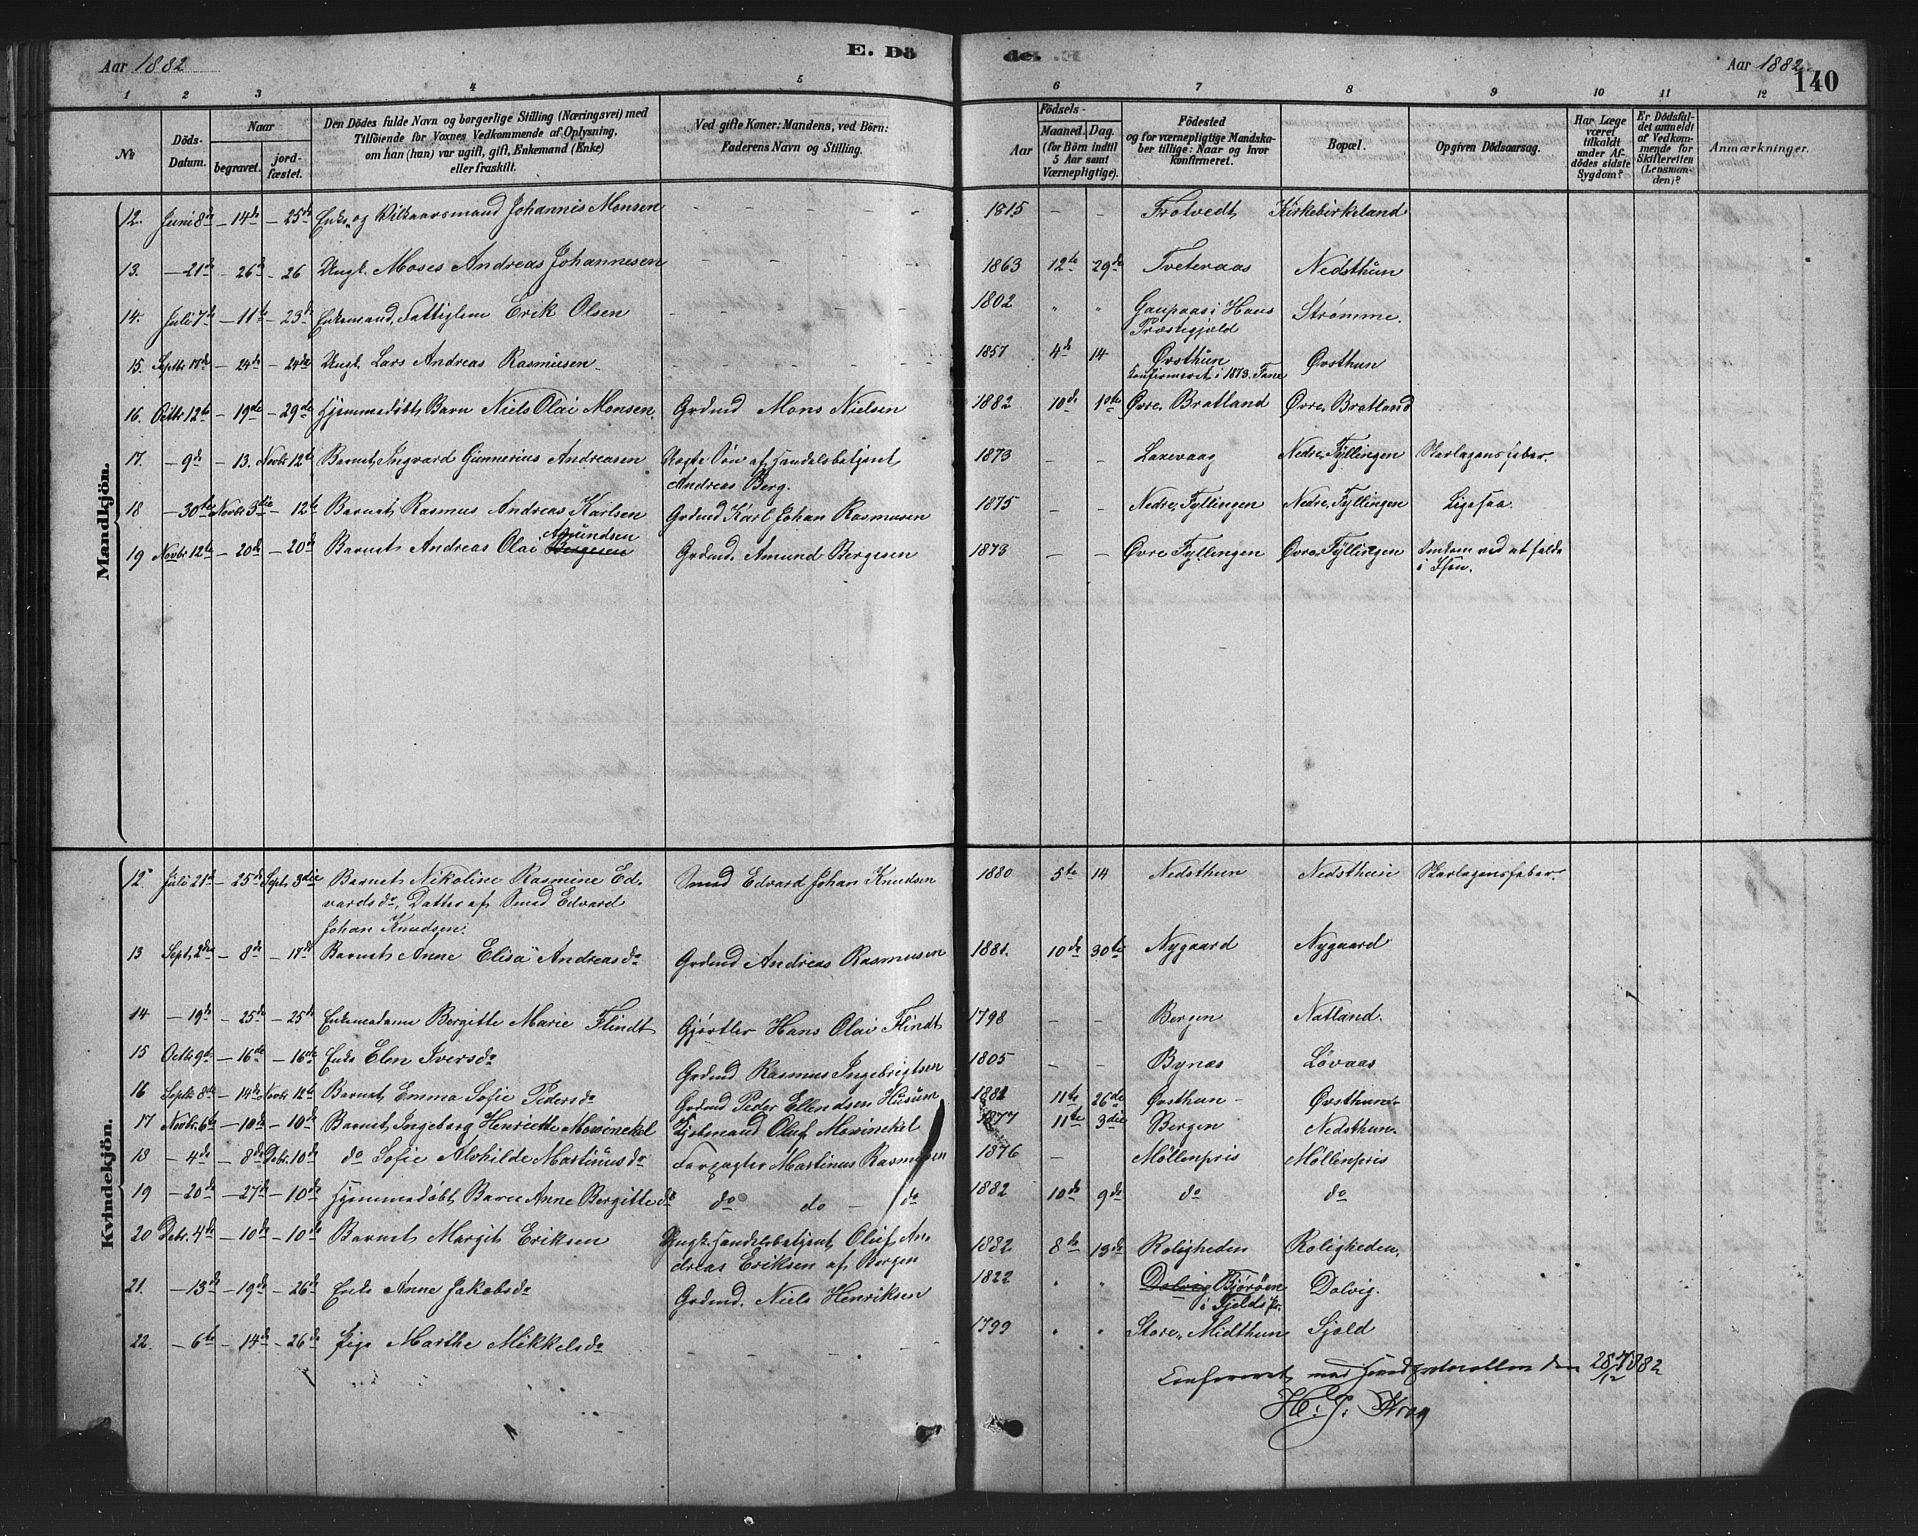 Aar 1882
E. Dö
de. E
Aar 1882
140
1 2 3 4 5 6 7 8 9 10 11 12
No
Döds-Datum.
Naar
begravet.
jordfæstet.
Den Dödes fulde Navn og borgerlige Stilling (Næringsvei) med
Tilföiende for Voxnes Vedkommende af Oplysning,
om han (hun) var ugift, gift, Enkemand (Enke)
eller fraskilt.
Ved gifte Koner: Mandens, ved Börn:
Faderens Navn og Stilling.
Födsels-
Aar
Maaned. Dag.
(for Börn indtil
5 Aar samt
Værnepligtige).
Födested
og for værnepligtige Mandska-
ber tillige: Naar og hvor
konfirmeret.
Bopæl.
Opgiven Dödsaarsag.
Har Læge
været
tilkaldt
under Af-
dödes sidste
Sygdom?
Er Dödsfal-
det anmeldt
af Vedkom-
mende for
Skifteretten
(Lensman-
den)?
Anmærkninger.
Mandkjön.
12. Juni 8de – 14de – 25de Enke- og Vilkaarsmand Johannis Monsen – – – – 1815 – – Trotvedt Kirkebirkeland
13. – 21de – 26de – 26 Ungk. Moses Andreas Johannesen – – – – 1863 12te 29de Tveteraas Nedsthun
14. Juli 7de – 11te – 23de Enkemand, Fattiglem Erik Olsen – – – – 1802 " " Gaupaas i Hans Strømme.
Præstegjæld
15. Septbr. 17de – 24de – 24de Ungk. Lars Andreas Rasmusen – – – – 1857 4de 14 Øvsthun Øvsthun
konfirmeret i 1873. Fane
16. Octbr. 12te – 19de – 29de Hjemmedøbt Barn Niels Olai Monsen. Grdmd Mons Nielsen 1882 10de 1ste Øvre Bratland Øvre Bratland
17. – 9de – 13. Novbr. 12te Barnet Ingvard Gunnerius Andreasen Uægte Søn af Handelsbetjent 1873 – – Laxevaag Nedre Fyllingen Skarlagensfeber.
Andreas Berg.
18 – 30te Novbr. 3die – 12te Barnet Rasmus Andreas Karlsen Grdmd Karl Johan Rasmusen 1875 – – Nedre Fyllingen Nedre Fyllingen Ligesaa.
Amundsen
19 Novbr. 12te – 20de – 20de Barnet Andreas Olai Bergesen Grdmd. Amund Bergesen 1873 – – Øvre Fyllingen Øvre Fyllingen Omkom ved at falde
i Sjøn.
Kvindekjön.
12. Juli 21de – 25de Sept. 3die Barnet Nikoline Rasmine Ed- Smed Edvard Johan Knudsen 1880 5te 14 Nedsthun Nedsthun Skarlagensfeber.
vardsdr., Datter af Smed Edvard
Johan Knudsen.
13 Sept. 2den – 8de – 17de Barnet Anne Elisa Andreasdr Grdmd Andreas Rasmusen 1881. 10de 30te Nygaard Nygaard
14 – 19de – 25de – 25de Enkemadame Bergitte Marie Flindt Gjørtler Hans Olai Flindt 1798 – – Bergen Natland.
15 Octbr. 9de – 16de – 16de Enke Elen Iversdr Grdmd Rasmus Ingebrigtsen 1805 – – Bynæs Løvaas
16 Septbr. 8de – 14de Novbr. 12te Barnet Emma Sofie Pedersdr Grdmd Peder Ellendsen Husum 1881 11te 26de Øvsthun – Øvsthun
17 Novbr. 6te – 10de – 10de Barnet Ingeborg Henriette Mowinckel Kjøbmand Oluf Mowinckel 1877 11te 3die Bergen Nedsthun.
18 – 4de – 8de Debr. 10de do Sofie Alvhilde Martinusdr Forpagter Martinus Rasmusen 1876 – Møllenpris Møllenpris
19 – 20de – 27de – 10de Hjemmedøbt Barn Anne Bergitte do do do – do 1882 10de 9de do do
20 Debr. 4de – 10de – 10de Barnet Margit Eriksen Ungk. Handelsbetjent Oluf An- 1882 8de 13de Roligheden Roligheden.
dreas Eriksen af Bergen
21. – 13de – 19de – 26de Enke Anne Jakobsdr Grdmd. Niels Henriksen 1822 " " Dolvig Bjørøen Dolvig.
i Fjelds Pr.
22. – 6te – 14de – 26de Pige Marthe Mikkelsdr – – – – 1799 " " Store Midthun Sjold
Confereret med Hovedprotocollen den 28/12 1882